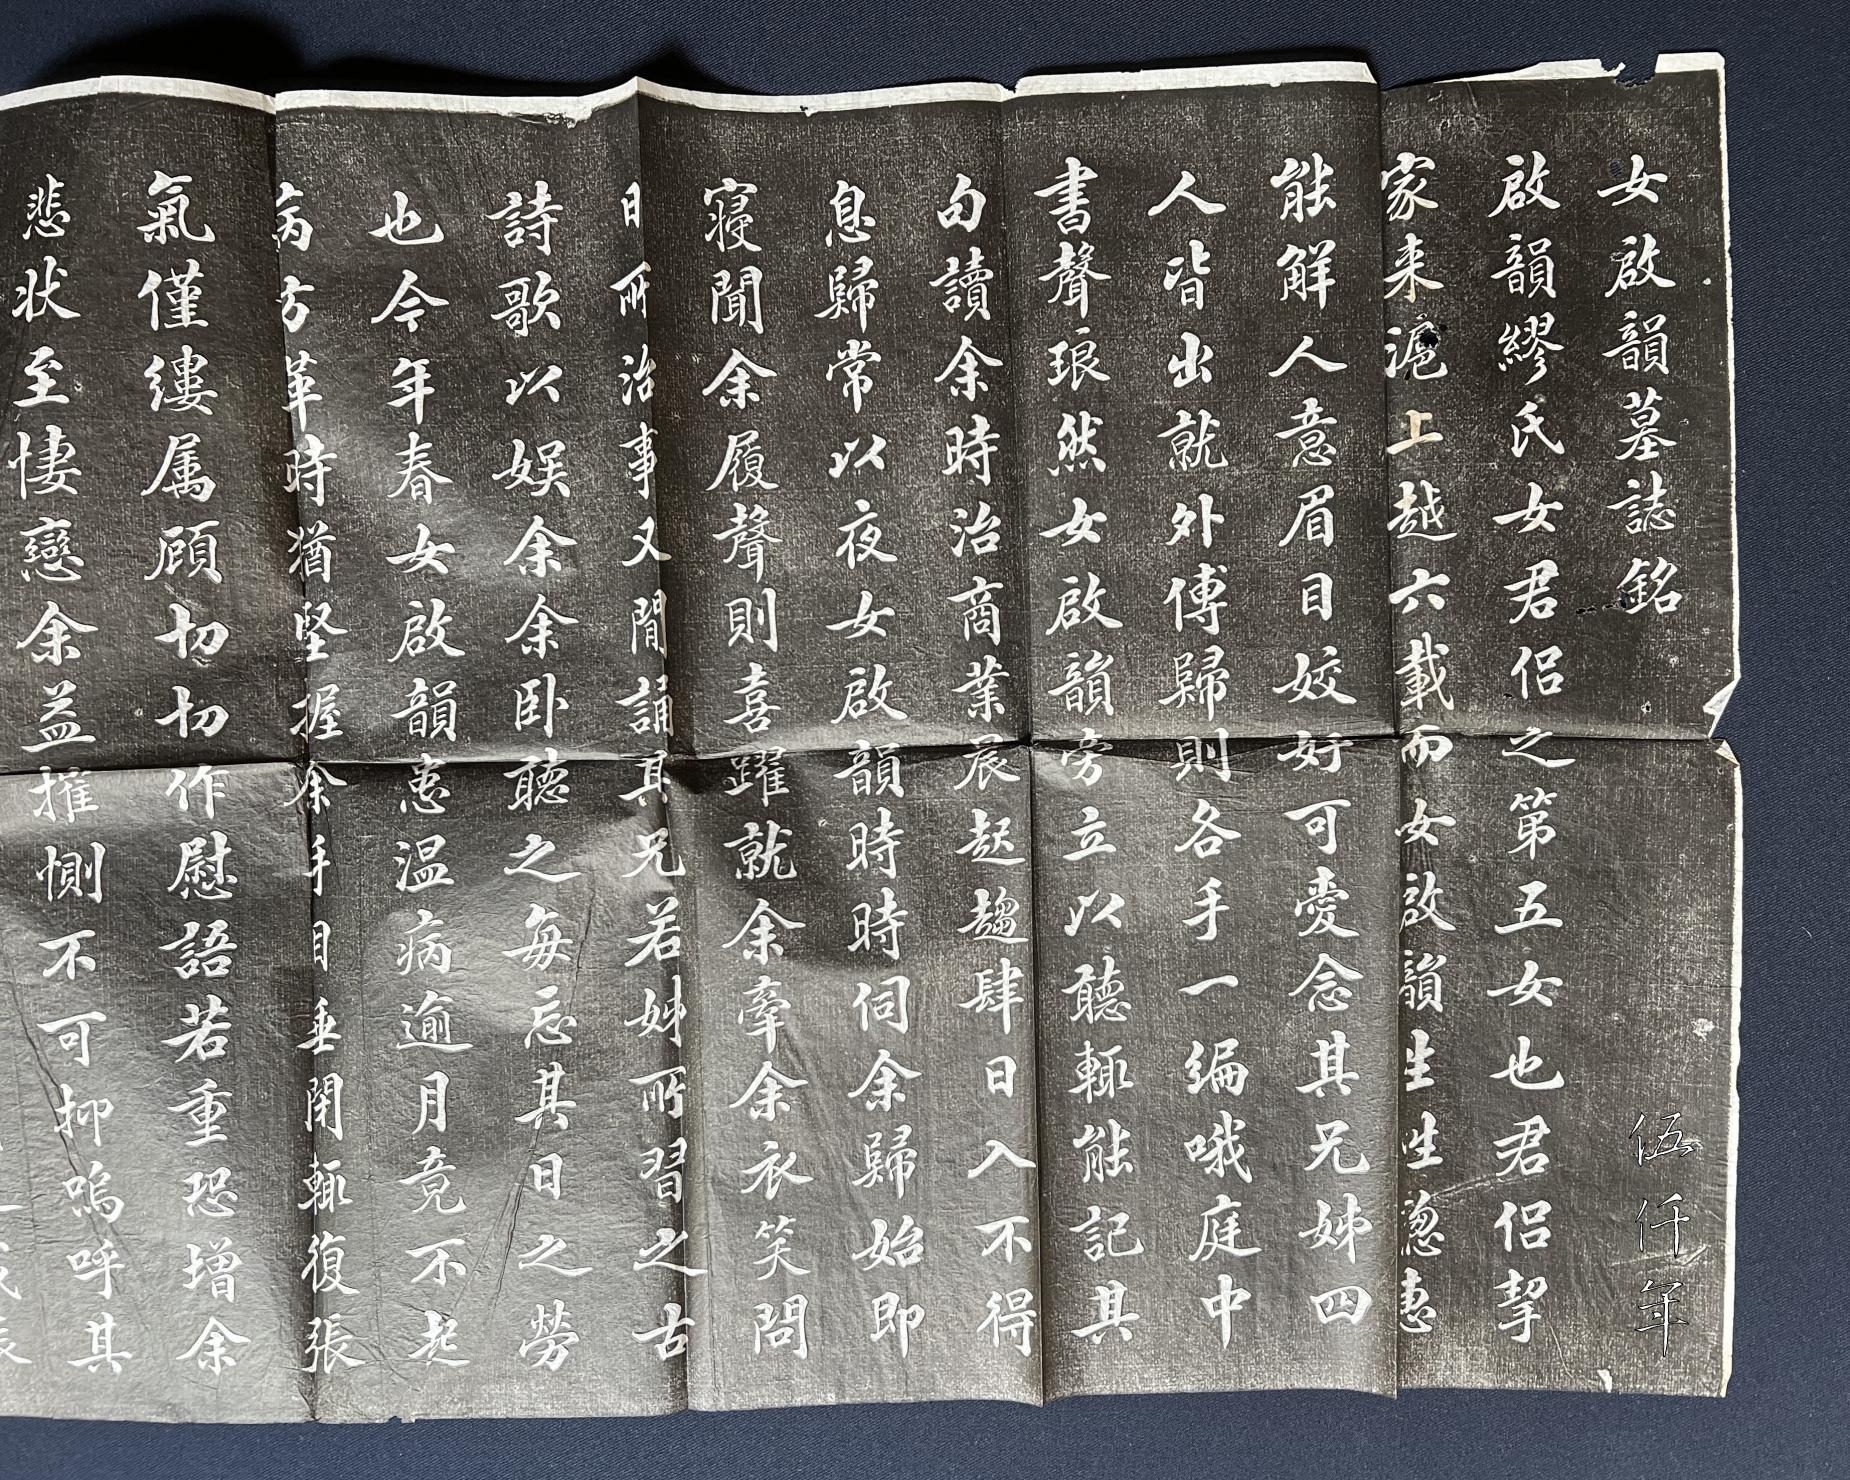 女啟韻墓誌銘
啟韻繆氏女君侶之第五女也君侶挈
家来滬上越六載而女啟韻生生蔥蕙
能解人意眉目姣好可愛念其兄姊四
人皆出就外傅歸則各手一編哦庭中
書聲琅然女啟韻旁立以聽輒能記其
句讀余時治商業晨起趨肆日入不得
息歸常以夜女啟韻時時伺余歸始即
寢聞余履聲則喜躍就余牽余衣笑問
日所治事又間誦其兄若姊所習之古
詩歌以娱余余卧聽之每忘其日之勞
也今年春女啟韻患温病逾月竟不起
病方革時猶堅握余手目垂閉輒復張
氣僅縷属顧切切作慰語若重恐增余
悲状至悽戀余益摧惻不可抑嗚呼其
伍仟年